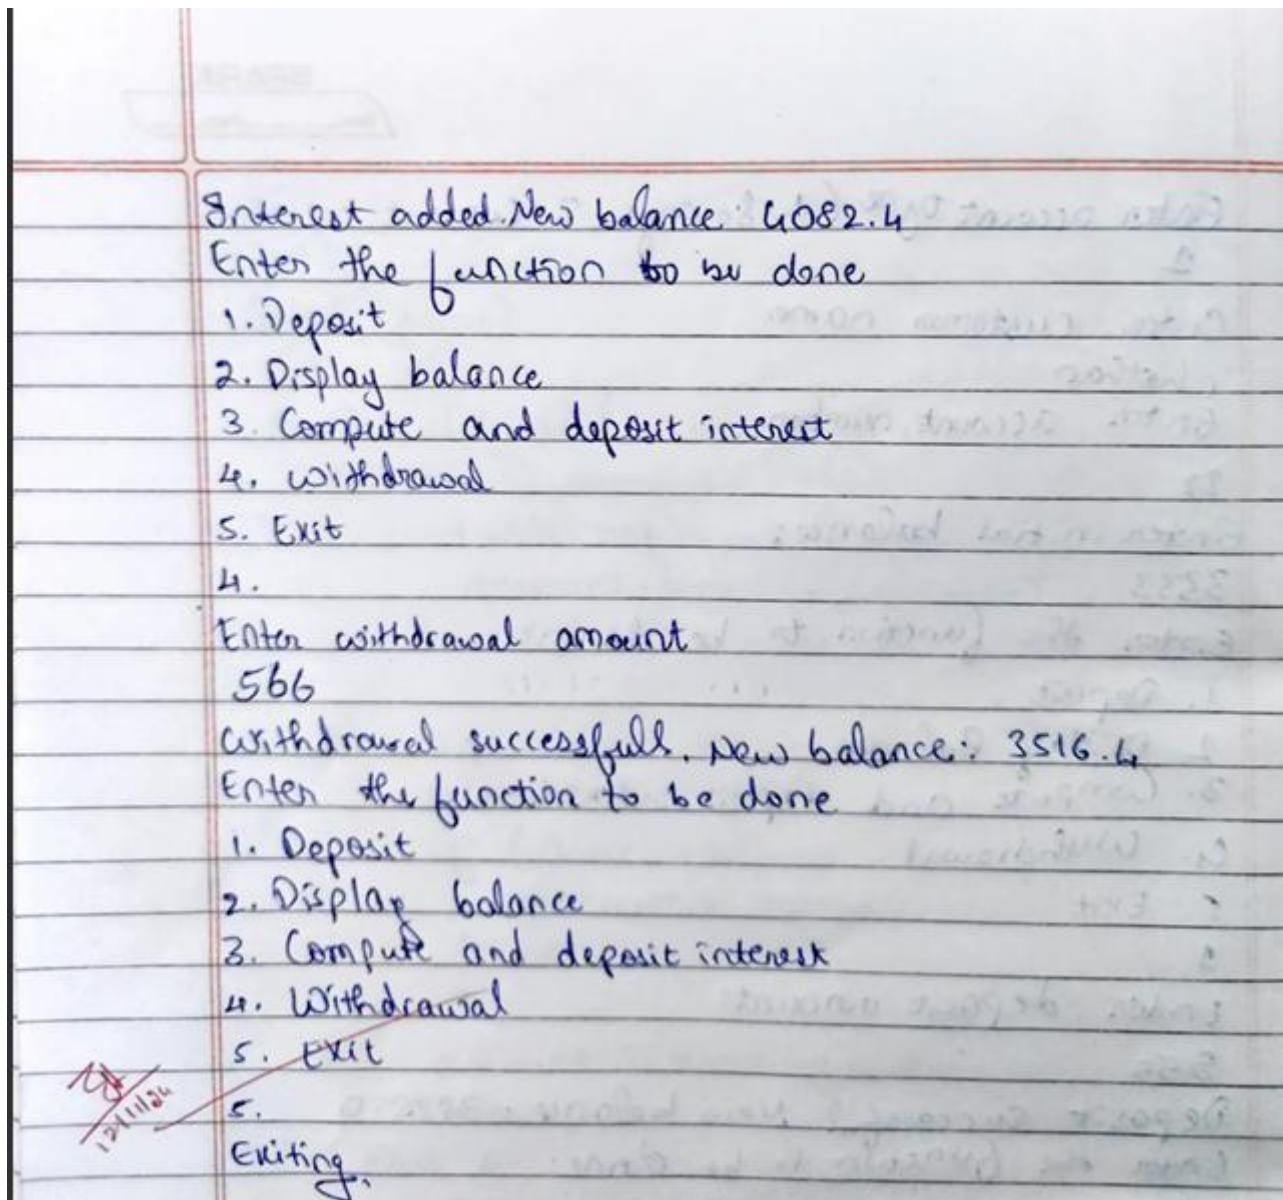 Interest added. New balance: 4082.4
Enter the function to be done
1. Deposit
2. Display balance
3. Compute and deposit interest
4. Withdrawal
5. Exit
4.
Enter withdrawal amount
566
Withdrawal successfull. New balance: 3516.4
Enter the function to be done
1. Deposit
2. Display balance
3. Compute and deposit interest
4. Withdrawal
5. Exit
5.
Exiting.